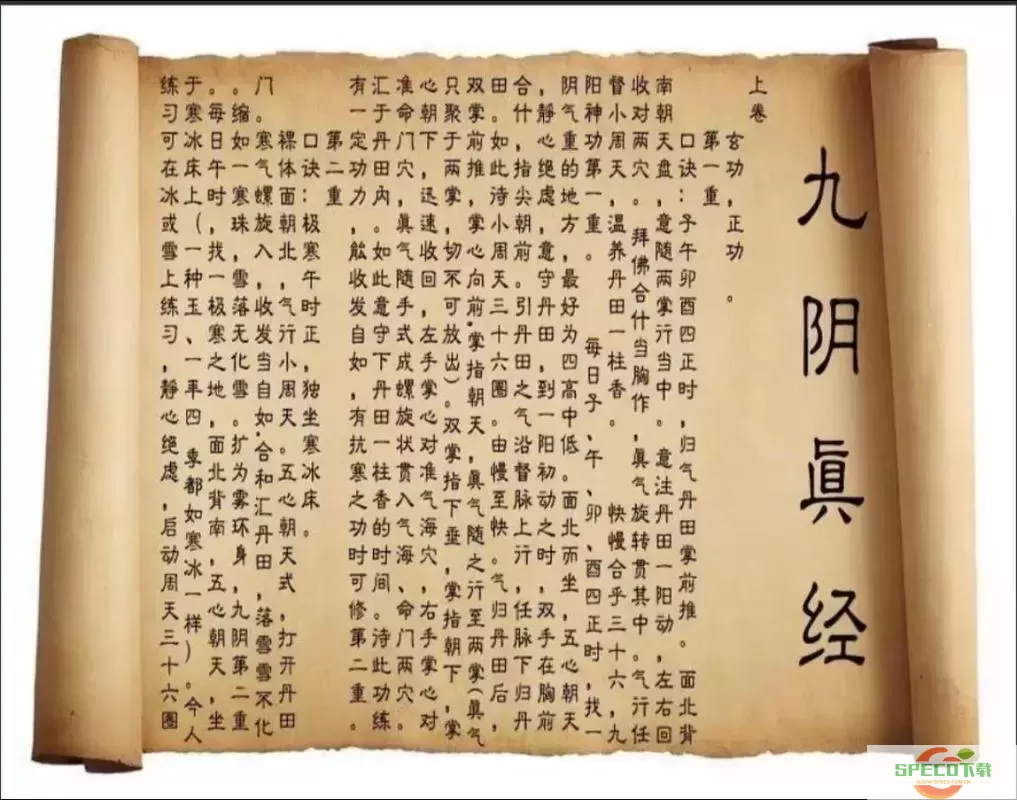 九阴眞经
上卷
玄功,正功。
第一重
口诀:子午卯酉四正时,归气丹田掌前推。面北背
南朝天盘,意随两掌行当中。意注丹田一阳动,左右回
收对两穴。拜佛合什当胸作,眞气旋转贯其中。气行任
督小周天,温养丹田一柱香。快慢合乎三十六,九
阳神功第一重。每日子、午、卯、酉四正时,找一
阴气重的地方,最好为四高中低。面北而坐,五心朝天
,静心绝虑,意守丹田,到一阳初动之时,双手在胸前
合什,指尖朝前。引丹田之气沿督脉上行,任脉下归丹
田。如此待小周天三十六圈。由慢至快。气归丹田后,
双掌前推,掌心向前,掌指朝天,眞气随之行至两掌(眞气
只聚于两掌,切不可放出)。双掌指下垂,掌指朝下,掌
心朝下,迅速收回,左手掌心对准气海穴,右手掌心对
准命门穴,眞气随手式成螺旋状贯入气海、命门两穴。
汇于丹田内。如此意守下丹田一柱香的时间。待此功练
有一定功力,能收发自如,有抗寒之功时可修第二重。
第二重
口诀:极寒午时正,独坐寒冰床。
裸体面朝北,气行小周天。五心朝天式,打开丹田
门 寒气螺旋入,收发当自如,合和汇丹田,落雪雪不化
。缩如一寒珠,雪落无化雪。扩为雾环身,九阴第二重
。每日午时,找一极寒之地,面北背南,五心朝天,坐
于寒冰床上(一种玉、一年四季都如寒冰一样)。今人
练习可在冰或雪上练习,静心绝虑,启动周天三十六圈
SPECO下载
WWW.SPECO.COM.CN